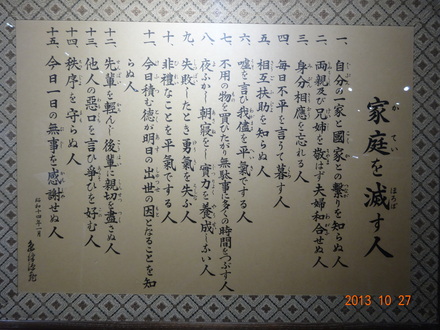 家庭を滅す人
一、自分の一家と國家との繋がりを知らぬ人
二、両親及び兄姉を敬はず夫婦和合せぬ人
三、身分相應を忘れる人
四、毎日不平を言うて暮す人
五、相互扶助を知らぬ人
六、嘘を言ひ我儘を平氣でする人
七、不用の物を買ひたがり無駄事に多くの時間をつぶす人
八、夜ふかし朝寝をし實力を養成しない人
九、失敗したとき勇氣を失ふ人
十、非禮なことを平氣でする人
十一、今日積む徳が明日の出世の因となることを知
らぬ人
十二、先輩を軽んじ後輩に親切を盡さぬ人
十三、他人の惡口を言ひ爭ひを好む人
十四、秩序を守らぬ人
十五、今日一日の無事を感謝せぬ人
昭和十四年一月
2013 10 27